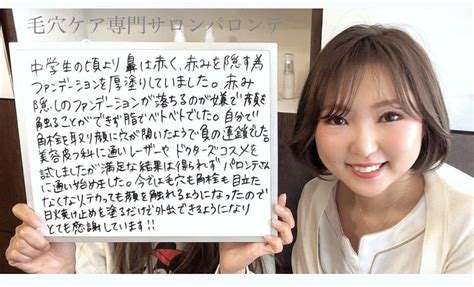 毛穴ケア専門サロンパロンテ
中学生の頃より鼻は赤く、赤みを隠す為
ファンデーションを厚塗りしていました。赤み
隠しのファンデーションが落ちるのが嫌で顔を
触ることができず脂でベトベトでした。自分で
角栓を取り顔に穴が開いたようで負の連鎖でした。
美容皮フ科に通いレーザーや ドクターズコスメを
試しましたが満足な結果は得られず パロンテさん
に通い始めました。今では毛穴も角栓も目立た
なくなり、テカっても顔を触れるようになったので
日焼け止めを塗るだけで外出できるようになり
とても感謝しています!!